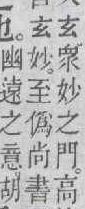 玄衆妙之門。高
玄妙。至僞尚書
也。幽遠之意。胡